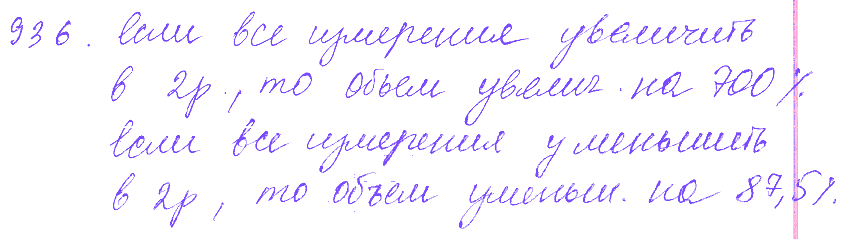 936. Если все измерения увеличить
в 2р., то объем увелич. на 700%.
Если все измерения уменьшить
в 2р, то объём уменьш. на 87,5%.